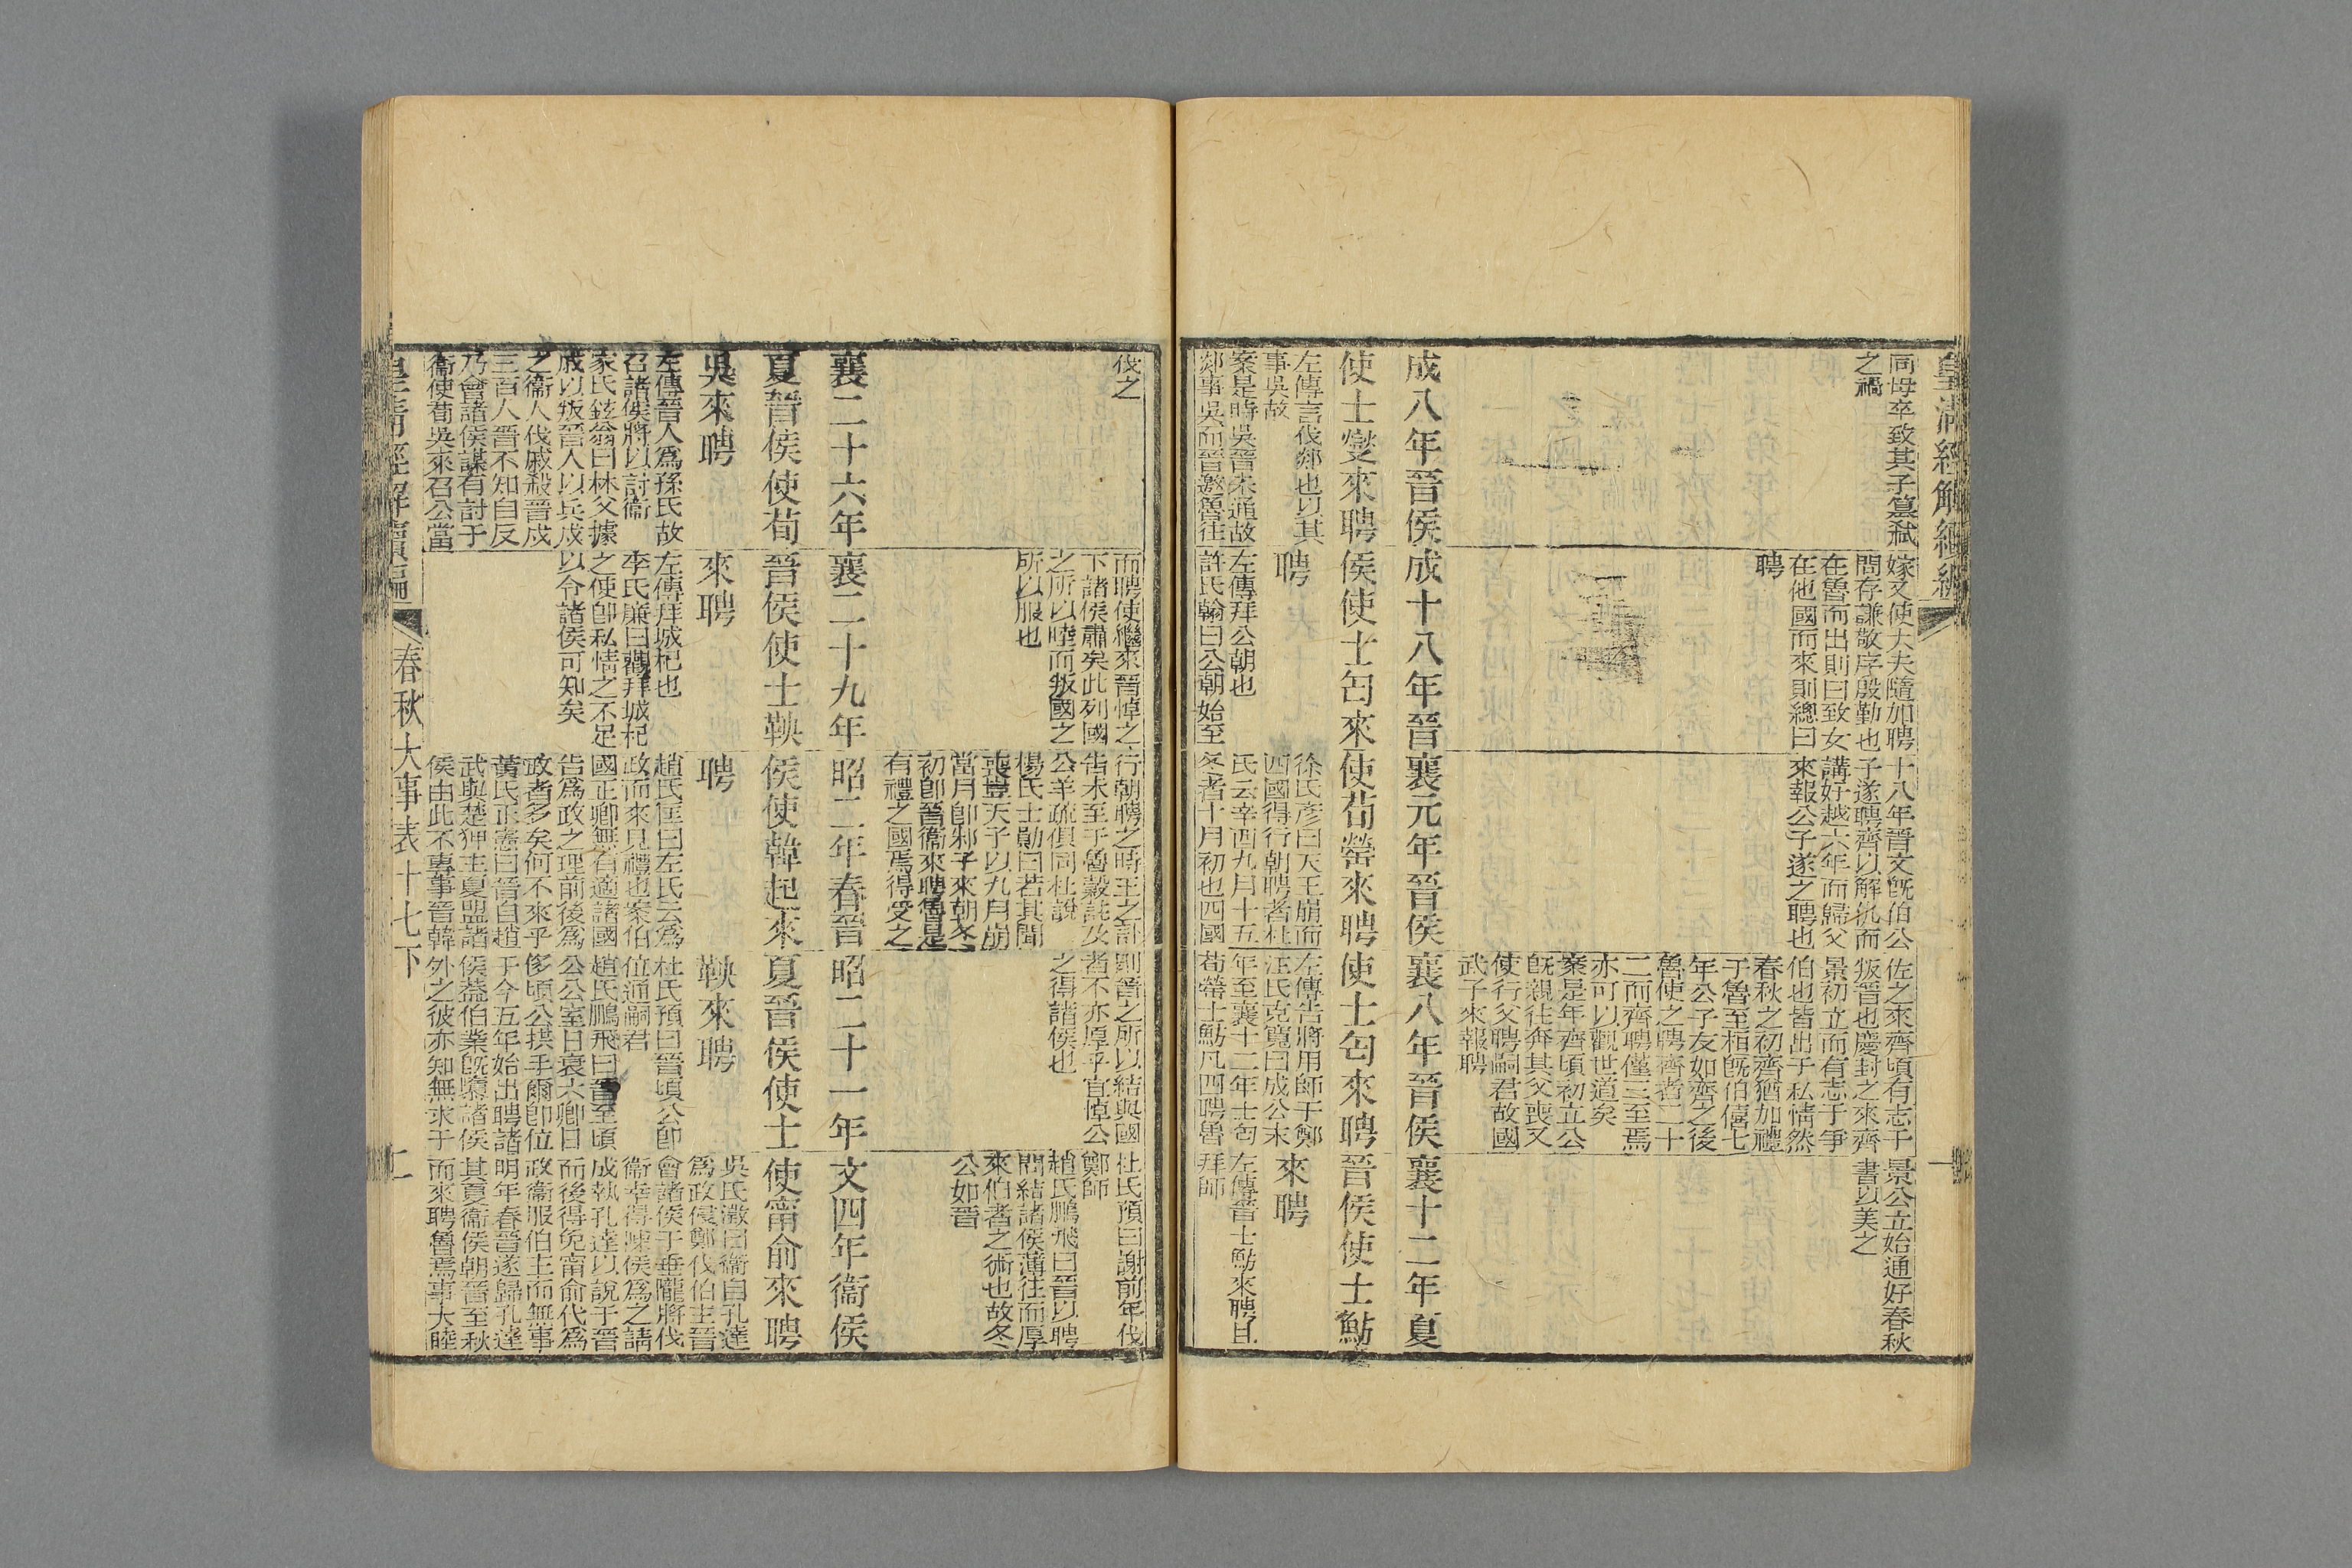 皇清經解續編
同母卒致其子簒弑
之禍
嫁又使大夫隨加聘
問存謙敬序殷勤也
在魯而出則曰致女
在他國而來則總曰
聘
十八年晉文旣伯公
子遂聘齊以解仇而
講好越六年而歸父
來報公子遂之聘也
佐之來齊頃有志于
叛晉也慶封之來齊
景初立而有志于爭
伯也皆出于私情然
春秋之初齊猶加禮
于魯至桓旣伯僖七
年公子友如齊之後
魯使之聘齊者二十
二而齊聘僅三至焉
亦可以觀世道矣
案是年齊頃初立公
旣親往奔其父喪又
使行父聘嗣君故國
武子來報聘
景公立始通好春秋
書以美之
成八年晉侯
使士燮來聘
左傳言伐郯也以其
事吳故
案是時吳晉未通故
郯事吳而晉邀魯往
成十八年晉
侯使士匄來
聘
左傳拜公朝也
許氏翰曰公朝始至
襄元年晉侯
使荀罃來聘
徐氏彥曰天王崩而
四國得行朝聘者杜
氏云辛酉九月十五
冬者十月初也四國
襄八年晉侯
使士匄來聘
左傳告將用師于鄭
汪氏克寬曰成公末
年至襄十二年士匄
荀罃士魴凡四聘魯
襄十二年夏
晉侯使士魴
來聘
左傳晉士魴來聘且
拜師
伐之
而聘使繼來晉悼之
下諸侯肅矣此列國
之所以睦而叛國之
所以服也
行朝聘之時王之訃
告未至于魯穀訛及
公羊疏俱同杜說
楊氏士勛曰若其聞
喪豈天子以九月崩
當月卽邾子來朝冬
初卽晉衞來聘魯是
有禮之國焉得受之
則晉之所以結與國
者不亦厚乎宜悼公
之得諸侯也
杜氏預曰謝前年伐
鄭師
趙氏鵬飛曰晉以聘
問結諸侯薄往而厚
來伯者之術也故冬
公如晉
襄二十六年
夏晉侯使荀
吳來聘
左傳晉人爲孫氏故
召諸侯將以討衞
家氏鉉翁曰林父據
戚以叛晉人以兵戍
之衞人伐戚殺晉戍
三百人晉不知自反
乃會諸侯謀有討于
衞使荀吳來召公當
襄二十九年
晉侯使士鞅
來聘
左傳拜城杞也
李氏廉曰觀拜城杞
之使卽私情之不足
以令諸侯可知矣
昭二年春晉
侯使韓起來
聘
趙氏匡曰左氏云爲
政而來見禮也案伯
國正卿無有適諸國
告爲政之理前後爲
政者多矣何不來乎
黃氏正憲曰晉自趙
武與楚狎主夏盟諸
侯由此不專事晉韓
昭二十一年
夏晉侯使士
鞅來聘
杜氏預曰晉頃公卽
位通嗣君
趙氏鵬飛曰晉至頃
公公室日衰六卿日
侈頃公拱手爾卽位
于今五年始出聘諸
侯葢伯業旣隳諸侯
外之彼亦知無求于
文四年衞侯
使甯俞來聘
吳氏澂曰衞自孔達
爲政侵鄭伐伯主晉
會諸侯于垂隴將伐
衞幸得陳侯爲之請
成執孔達以說于晉
而後得免甯俞代爲
政衞服伯主而無事
明年春晉遂歸孔達
其夏衞侯朝晉至秋
而來聘魯焉事大睦
皇清經解續編
春秋大事表十七下